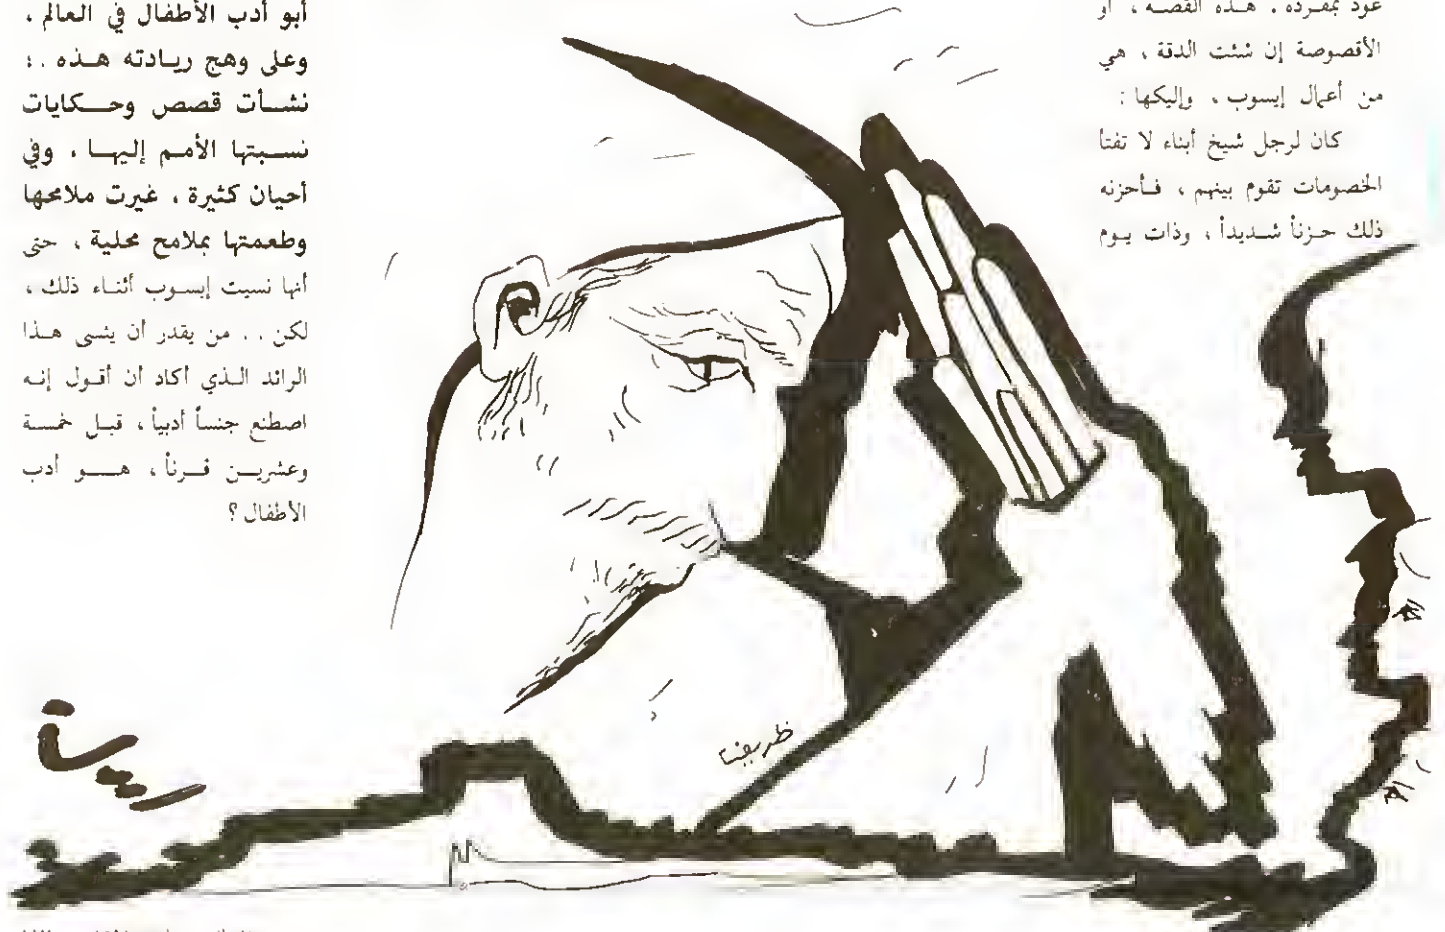 عود بمفرده . هـذه القصـه ، او
الأقصوصة إن شئت الدقة ، هي
من أعمال إيسوب ، وإليكها :
كان لرجل شيخ أبناء لا تفتأ
الخصومات تقوم بينهم ، فـأحزنه
ذلك حـزناً شـديداً ، وذات يـوم
أبو أدب الأطفال في العالم ،
وعلى وهج ريـادته هـذه . .
نشـأت قصص وحـكايات
نسـبتها الأمـم إليهـا ، وفي
أحيان كثيرة ، غيرت ملامحها
وطعمتها بملامح محلية ، حتى
أنها نسيت إيسـوب أثنـاء ذلك ،
لكن . . من يقدر أن ينسى هـذا
الرائد الـذي أكاد أن أقـول إنـه
اصطنع جنسـاً أدبيـاً ، قبـل خمسـة
وعشريـن قـرناً ، هـو أدب
الأطفال ؟